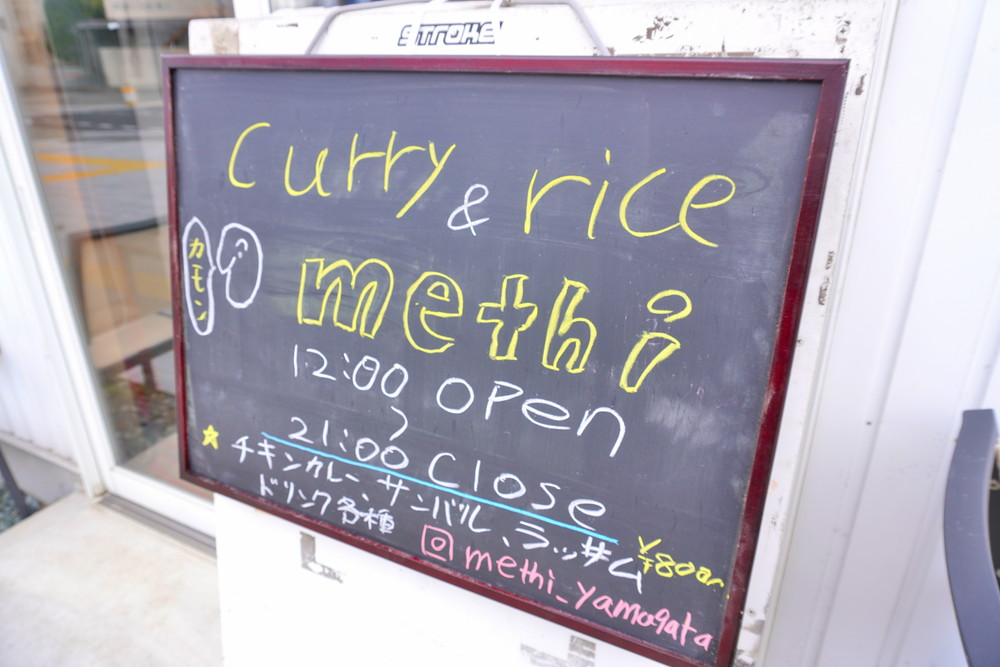 STROKE
curry & rice
カモン
methi
12:00 OPEN
〜
21:00 Close
☆チキンカレー、サンバル、ラッサム
ドリンク各種
methi_yamagata